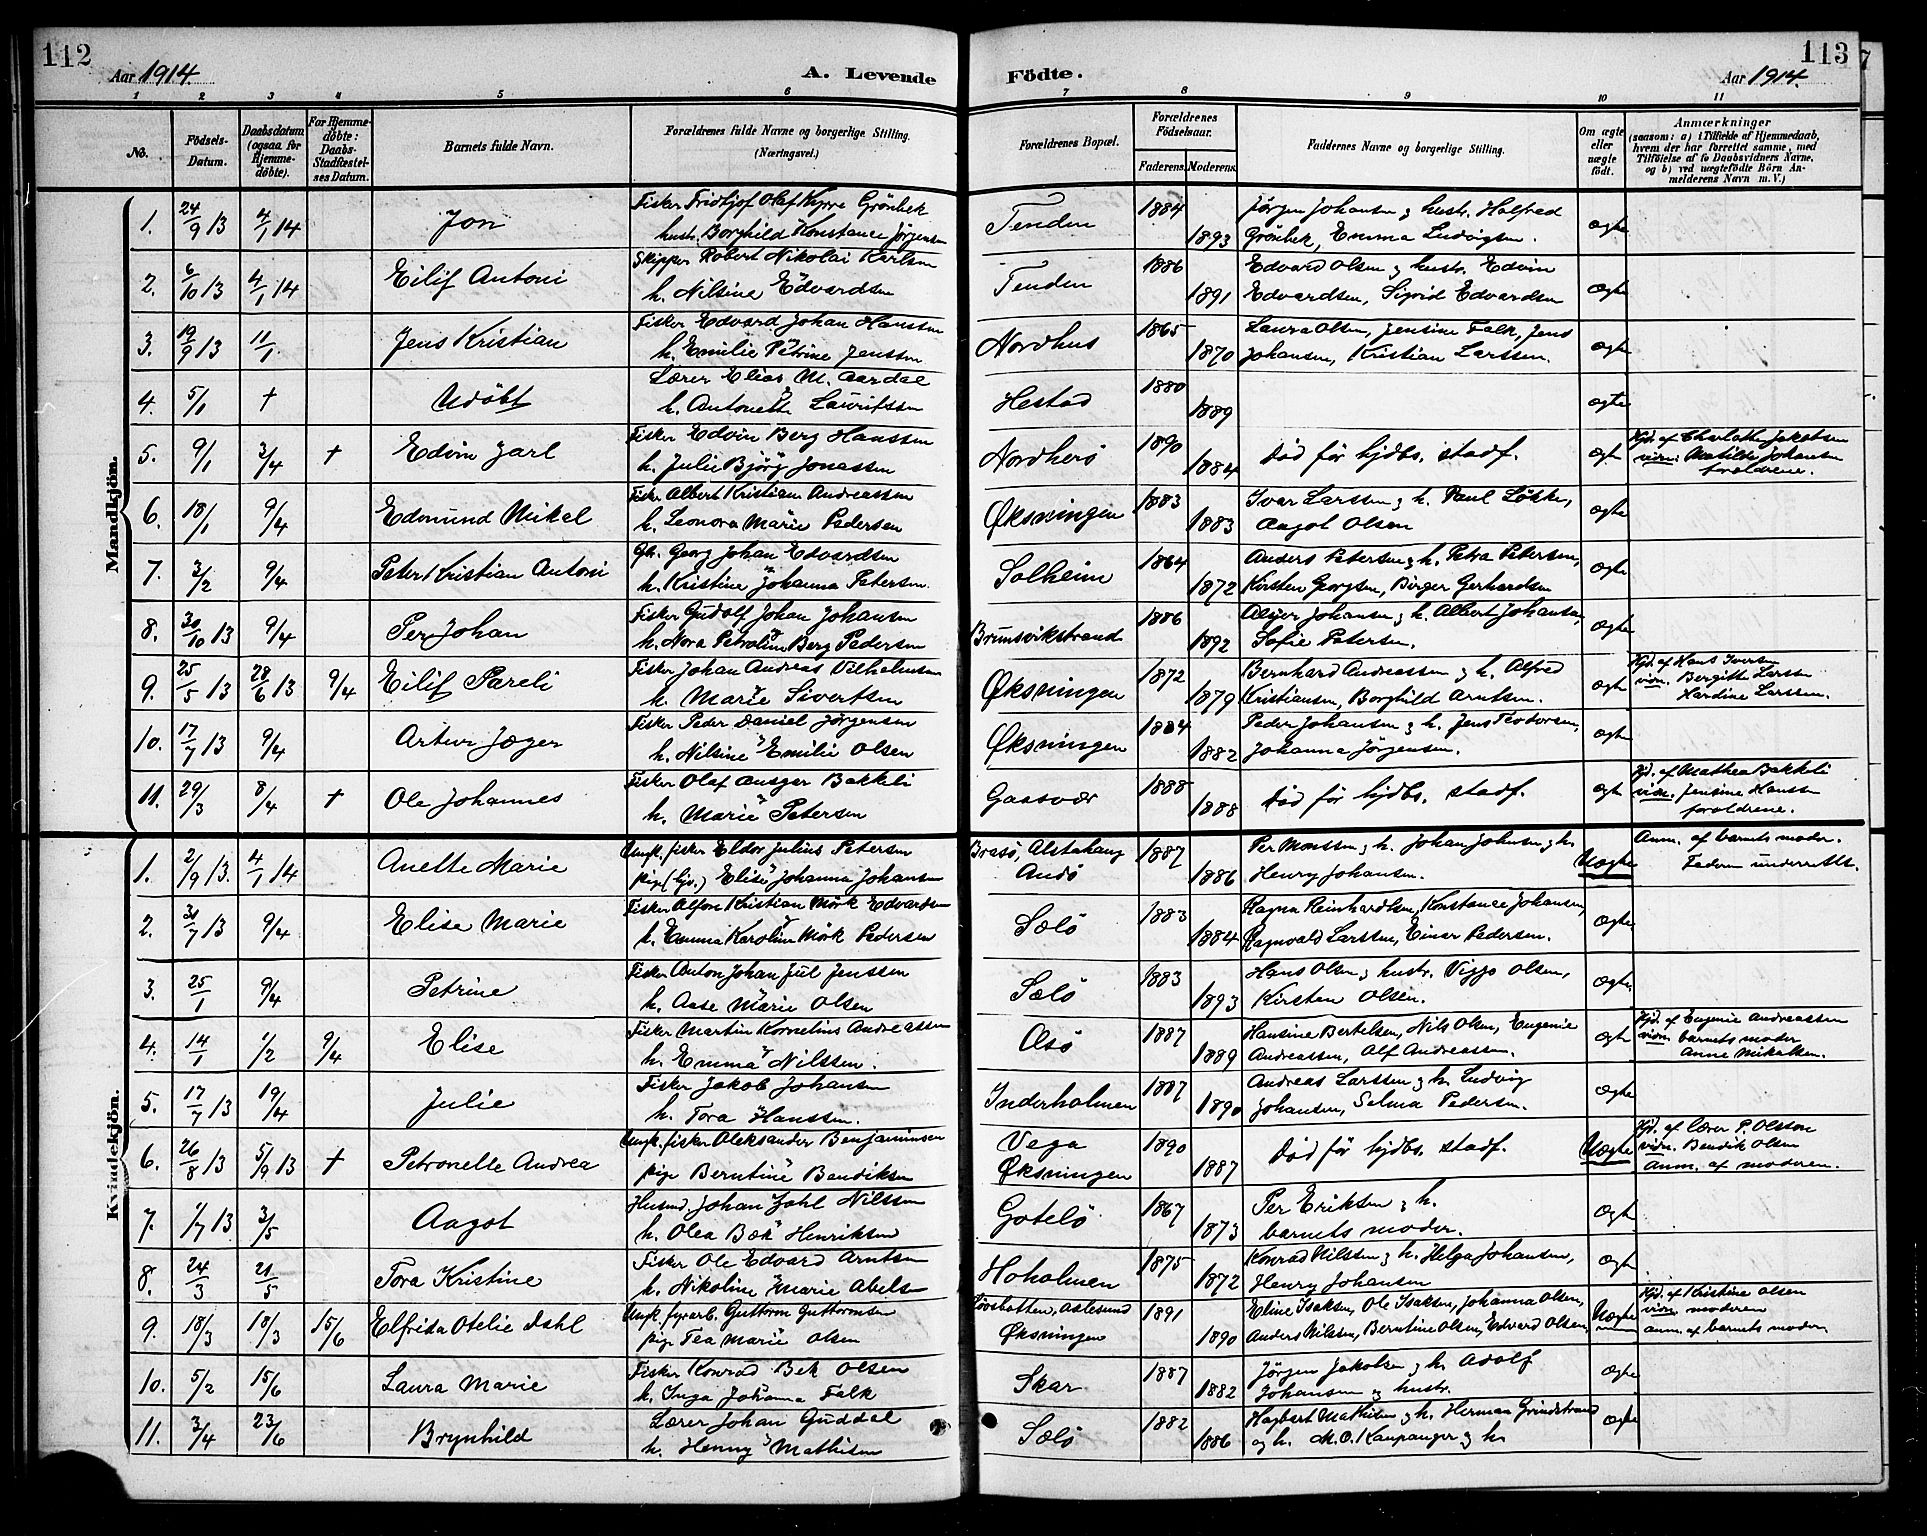 112
Aar 1914.
A. Levende
Födte.
113
Aar 1914.
1 2 3 4 5 6 7 8 9 10 11
No.
Födsels-
Datum.
Daabsdatum
(ogsaa for
Hjemme-
döbte).
For Hjemme-
döbte:
Daabs-
Stadfæstel-
ses Datum.
Barnets fulde Navn.
Forældrenes fulde Navne og borgerlige Stilling.
(Næringsvei.)
Forældrenes Bopæl.
Forældrenes
Födselsaar.
Faderens. Moderens.
Faddernes Navne og borgerlige Stilling.
Om ægte
eller
uægte
födt.
Anmærkninger
(saasom: a) i Tilfælde af Hjemmedaab,
hvem der har forrettet samme, med
Tilföielse af to Daabsvidners Navne,
og b) ved uægtefödte Börn An-
melderens Navn m. V.)
Mandkjön.
1. 24/9 13 4/1 14 Jon Fisker Fridtjof Olaf Kyrre Grönbek Tenden 1884 Jørgen Johansen g hustr. Halfred ægte
hustr. Borghild Konstance Jørgensen 1893 Grönbek, Emma Ludvigsen.
2. 6/10 13 4/1 14 Eilif Antoni Skipper Robert Nikolai Karlsen Tenden 1886 Edvard Olsen g hustr. Edvin ægte
h. Nilsine Edvardsen 1891 Edvardsen, Sigrid Edvardsen
3. 19/9 13 11/1 Jens Kristian Fisker Edvard Johan Hanssen Nordhus 1865 Laura Olsen, Jensine Falk, Jens ægte
h. Emilie Petrine Jenssen 1870 Johansen, Kristian Larssen.
4. 5/1 + Udöbt Lærer Elias M. Aardal Hestad 1880 ægte
h. Antonette Lauritssen 1889
5. 9/1 3/4 + Edvin Jarl Fisker Edvin Berg Hanssen Nordherö 1890 Död för hjdbs. stadf. ægte Hjd. af Charlotte Jakobsen
h. Julie Bjørg Jonassen 1884 vidn. Matilde Johansen
forældrene.
6. 18/1 9/4 Edmund Mikal Fisker Albert Kristian Andreassen Øksningen 1883 Ivar Larssen g h. Paul Løkke, ægte
h. Leonora Marie Pedersen 1883 Aagot Olsen
7. 3/2 9/4 Peter Kristian Antoni Gbr. Georg Johan Edvardsen Solheim 1864 Anders Petersen g h. Petra Petersen, ægte
h. Kristine Johanna Petersen 1872 Kirsten Georgsen, Birger Gerhardsen
8. 30/10 13 9/4 Per Johan Fisker Gudolf Johan Johansen Brunsvikstrand 1886 Johansen g h. Albert Johansen, ægte
h. Nora Petroline Berg Pedersen 1892 Sofie Petersen.
9. 25/5 13 28/6 13 9/4 Eilif Pareli Fisker Johan Andreas Vilhelmsen Øksningen 1872 Bernhard Andreassen g h. Alfred ægte Hjd. af Hans Iversen
h. Marie Sivertsen 1879 Kristiansen, Borghild Arntsen. vidn. Bergitte Larssen
Hardine Larssen.
10. 17/7 13 9/4 Artur Jæger Fisker Peder Daniel Jørgensen Øksningen 1884 Peder Johansen g h. Jens Teodorsen, ægte
h. Nilsine Emilie Olsen 1882 Johanna Jørgensen.
11. 29/3 8/4 + Ole Johannes Fisker Olaf Ansger Bakkeli Gaasvær 1888 Död för hjdbs. stadf. ægte Hjd. af Mathea Bakkeli
h. Marie Petersen 1888 vidn. Jensine Hanssen
forældrene.
Kvindekjön.
1. 2/9 13. 4/1 14 Anette Marie Ungk. fisker Eldor Julius Petersen Brasö, Alstahaug 1887 Per Monssen g h. Johan Johnsen g h. Uægte Anm. af barnets moder.
pige (hjv.) Elise Johanna Johansen Andö 1886 Henry Johansen. Faderen underrettet.
2. 30/7 13 9/4 Elise Marie Fisker Alfon Kristian Mørk Edvardsen Sælö 1883 Ragna Reinhardtsen, Konstance Johansen, ægte
h. Emma Karoline Mörk Pedersen 1884 Ragnvald Larssen, Einar Pedersen.
3. 25/1 9/4 Petrine Fisker Anton Johan Jul Jenssen Sælö 1883 Hans Olsen g hustr. Viggo Olsen, ægte
h. Aase Marie Olsen 1893 Kirsten Olsen.
4. 14/1 1/2 9/4 Elise Fisker Martin Kornelius Andreassen Olsö 1887 Hansine Bertelsen, Nils Olsen, Eugenie ægte Hjd. af Eugenie Andreassen
h. Emma Nilssen. 1889 Andreassen, Alf Andreassen. vidn. barnets moder
Anne Mikalsen.
5. 17/7 13 19/4 Julie Fisker Jakob Johansen Inderholmen 1887 Andreas Larssen g h. Ludvig ægte
h. Tora Hanssen. 1890 Johansen, Selma Pedersen.
6. 26/8 13 5/9 13 + Petronelle Andrea Ungk. fisker Oleksander Benjaminsen Vega 1890 Död för hjdbs. stadf. Uægte Hjd. af Lærer P. Olston
pige Berntine Bendiksen Øksningen 1887 vidn. Bendik Olsen
anm. af moderen.
7. 1/7 13 3/5 Aagot Husmd. Johan Zahl Nilssen Gotelö 1867 Per Eriksen g h. ægte
h. Olea Bæk Henriksen 1873 barnets moder.
8. 24/3 21/5 Tora Kristine Fisker Ole Edvard Arntsen Hoholmen 1875 Konrad Nilssen g h. Helga Johansen, ægte
h. Nikoline Marie Abelsen 1872 Henry Johansen
9. 18/3 18/3 15/6 Elfrida Otelie Dahl Ungk. fyrarb. Guttorm Guttormsen Aalesund 1891 Eline Isaksen, Ole Isaksen, Johanna Olsen, Uægte Hjd. af Kristine Olsen
pige Tea Marie Olsen Øksningen 1890 Anders Nilsen, Berntine Olsen, Edvard Olsen, vidn. moderen
anm. af barnets moder
10. 5/2 15/6 Laura Marie Fisker Konrad Bek Olsen Skar 1887 Jørgen Jakobsen g h. Adolf ægte
h. Inga Johanna Falk 1882 Johansen g hustr.
11. 3/4 23/6 Brynhild Lærer Johan Guddal Sælö 1882 Hagbart Mathisen g h. Herman Grindstrand ægte
h. Henny Mathisen 1886 og h. M. O. Kaupanger g h.